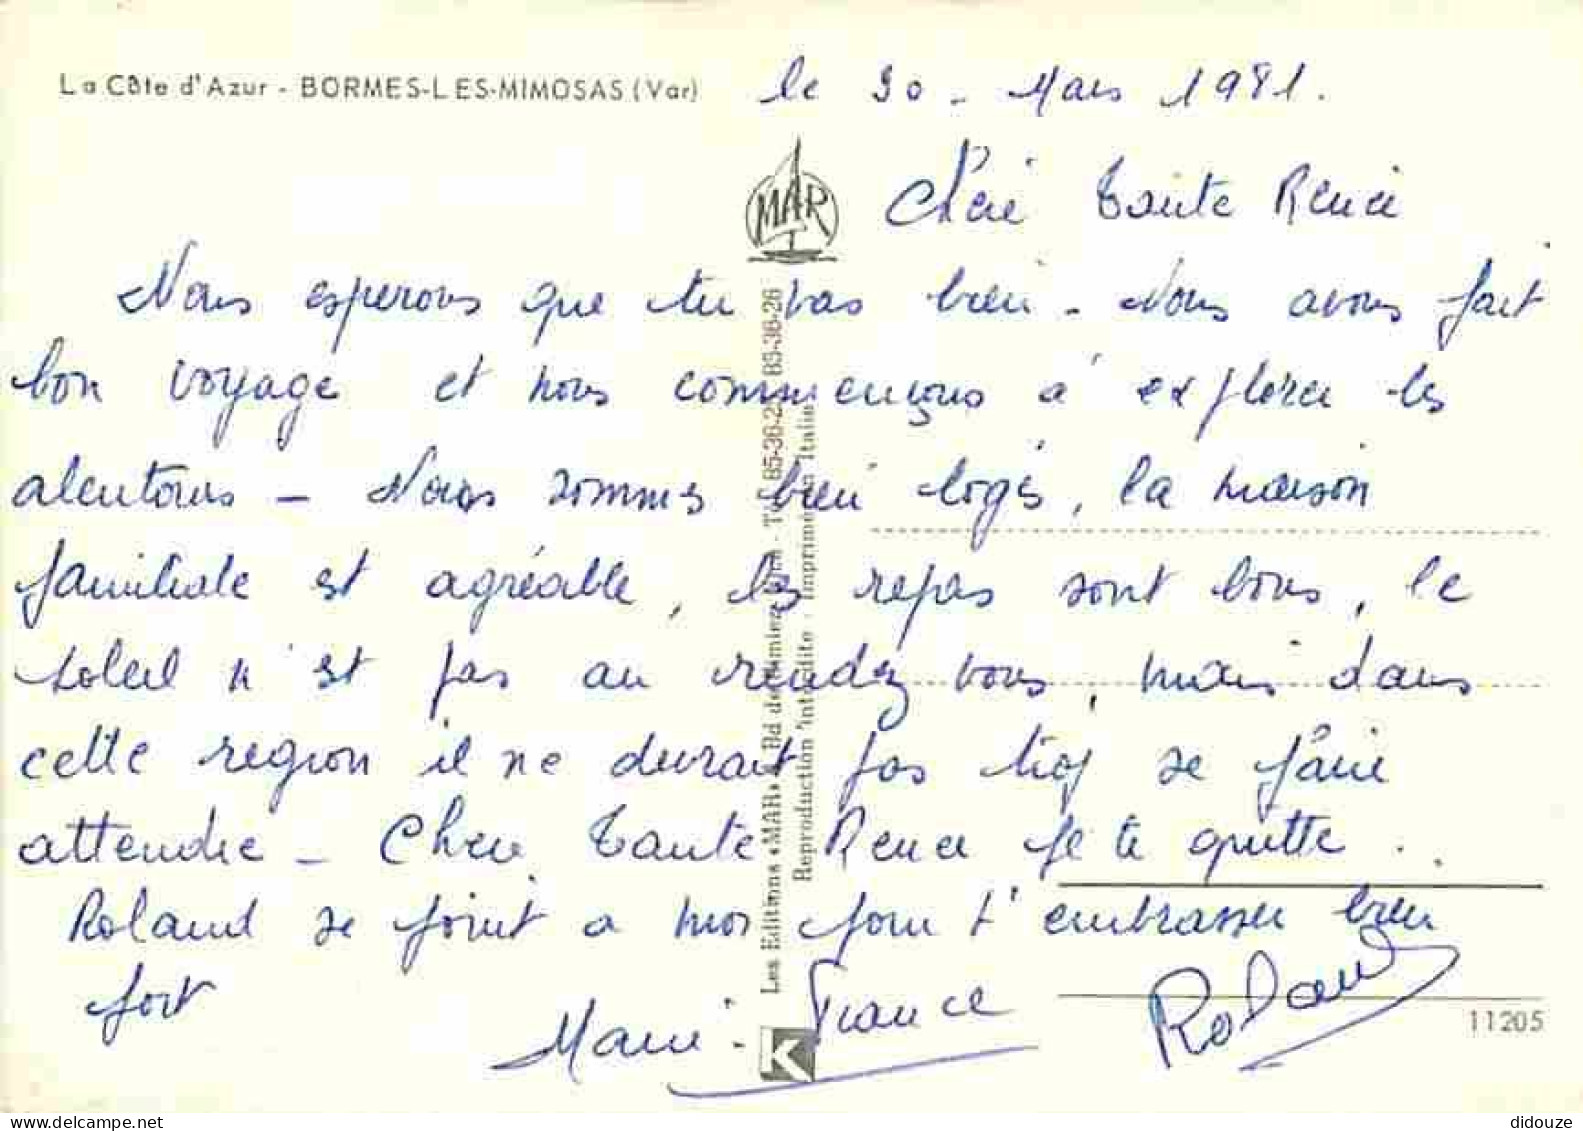 La Côte d'Azur - BORMES-LES-MIMOSAS (Var)
le 30 - Mars 1981.
MAR
Chère Tante Renée
Nous esperons que tu vas bien - Nous avons fait
bon voyage et nous commençons à explorer les
alentours - Nous sommes bien logés, la maison
familiale est agréable, les repas sont bons, le
soleil n'est pas au rendez vous, mais dans
cette region il ne devrait pas trop se faire
attendre - Chere Tante Renee je te quitte ..
Roland se joint a moi pour t'embrasser bien
fort
Marie-France
Roland
Les Editions «MAR» Bd de - Tél 85-36-25 85-36-26
Reproduction interdite - Imprimé en Italie
K
11205
didouze